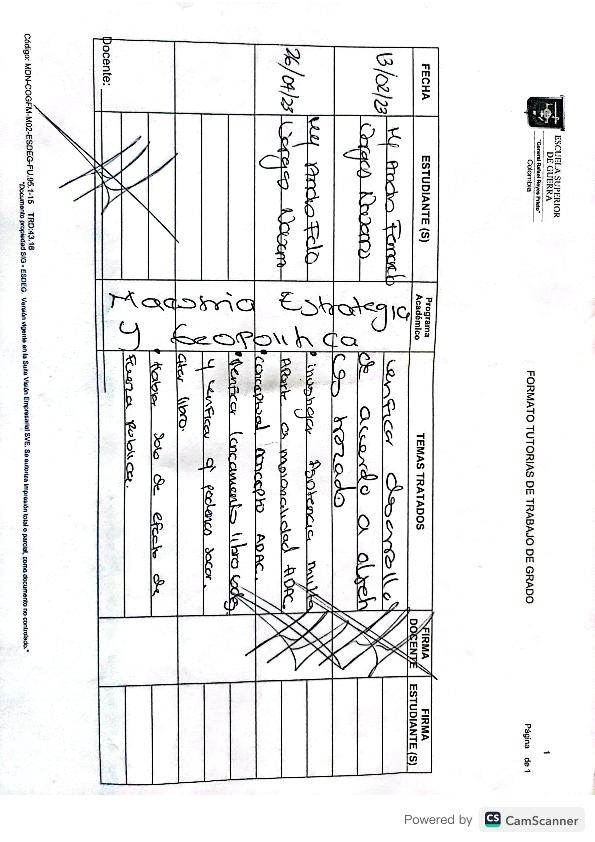 ESCUELA SUPERIOR
DE GUERRA
"General Rafael Reyes Prieto"
Colombia
FORMATO TUTORIAS DE TRABAJO DE GRADO
1
Página de 1
FECHA
ESTUDIANTE (S)
Programa
Académico
TEMAS TRATADOS
FIRMA
DOCENTE
FIRMA
ESTUDIANTE (S)
13/02/23
My Andres Fernando
Vargas
Estrategia
y Geopolitica
verificar desarrollo
de acuerdo a
trazado
26/04/23
My
Vargas
investigar Asistencia
Aporte a ADAC.
conceptual concepto ADAC.
libro
y verificar q podemos sacar.
citar libro.
Hablar solo de efecto de
Fuerza publica.
Docente:
Código: MDN-COGFM-M02-ESDEG-FU.95.1-15 TRD:43.18
"Documento propiedad SIG - ESDEG Versión vigente en la Suite Visión Empresarial SVE. Se autoriza impresión total o parcial, como documento no controlado."
Powered by CS CamScanner